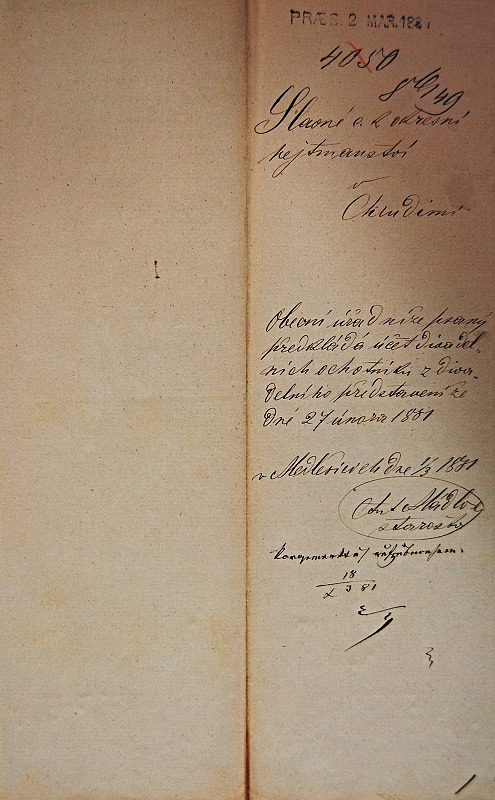 PRÆS. 2 MAR. 1881
4050
Slavné c. k. okresní
hejtmanství
v
Chrudimi
Obecní úřad níže psaný
předkládá účet divadel-
ních ochotníků z diva-
delního představení ze
dné 27 února 1881
v Medlešicích dne 1/3 1881
Ant Mádlo
starosta
18
3 81